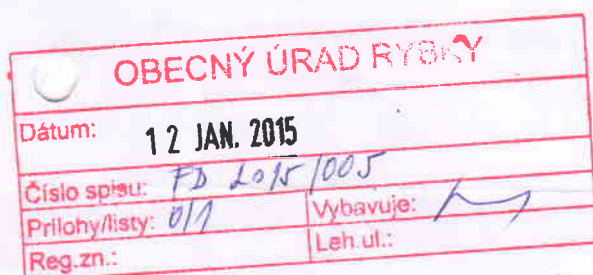 OBECNÝ ÚRAD RYBKY
Dátum: 12 JAN. 2015
Číslo spisu: FD 2015/005
Prílohy/listy: 0/1 Vybavuje:
Reg.zn.: Leh.ul.: